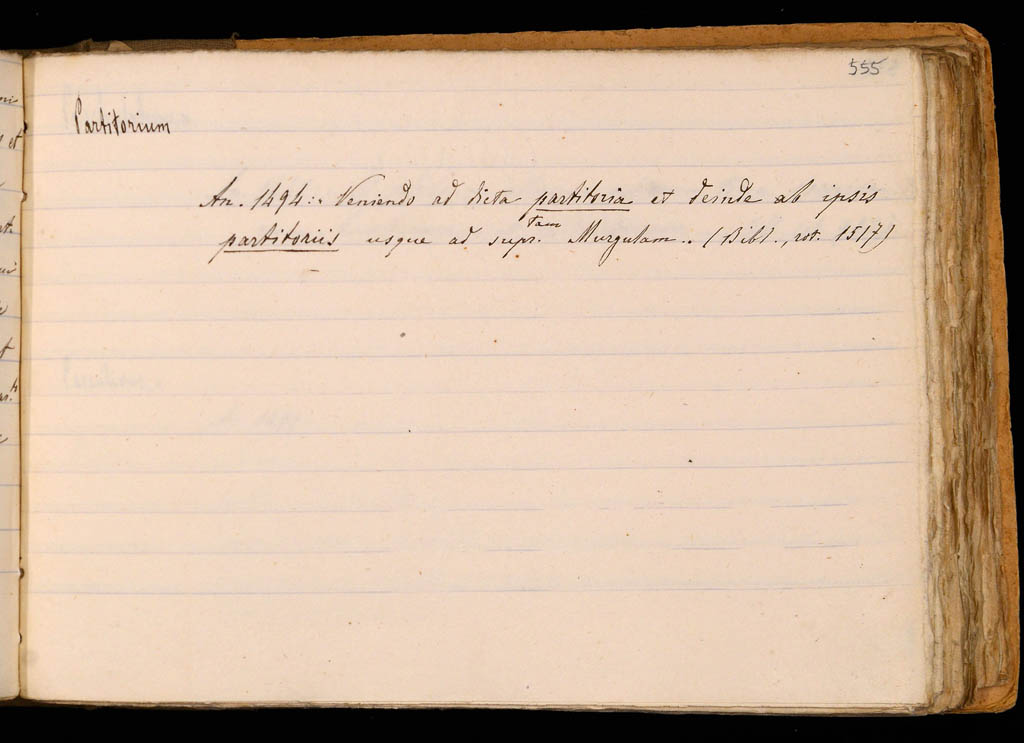 555
Partitorium
An. 1494:. Veniendo ad dicta partitoria et deinde ab ipsis
partitoriis usque ad supr.tam Murgulam.. (Bibl., rot. 1517)